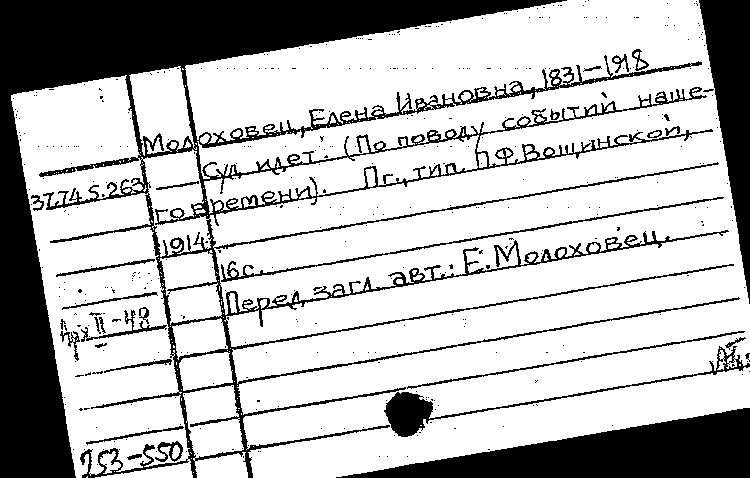 Молоховец, Елена Ивановна, 1831-1918
Суд идет! (По поводу событий наше-
37.74.5.263
го времени). Пг., тип. П.Ф.Вощинской,
1914.
16 с.
Перед загл. авт.: Е. Молоховец.
Арх II-48
253-550